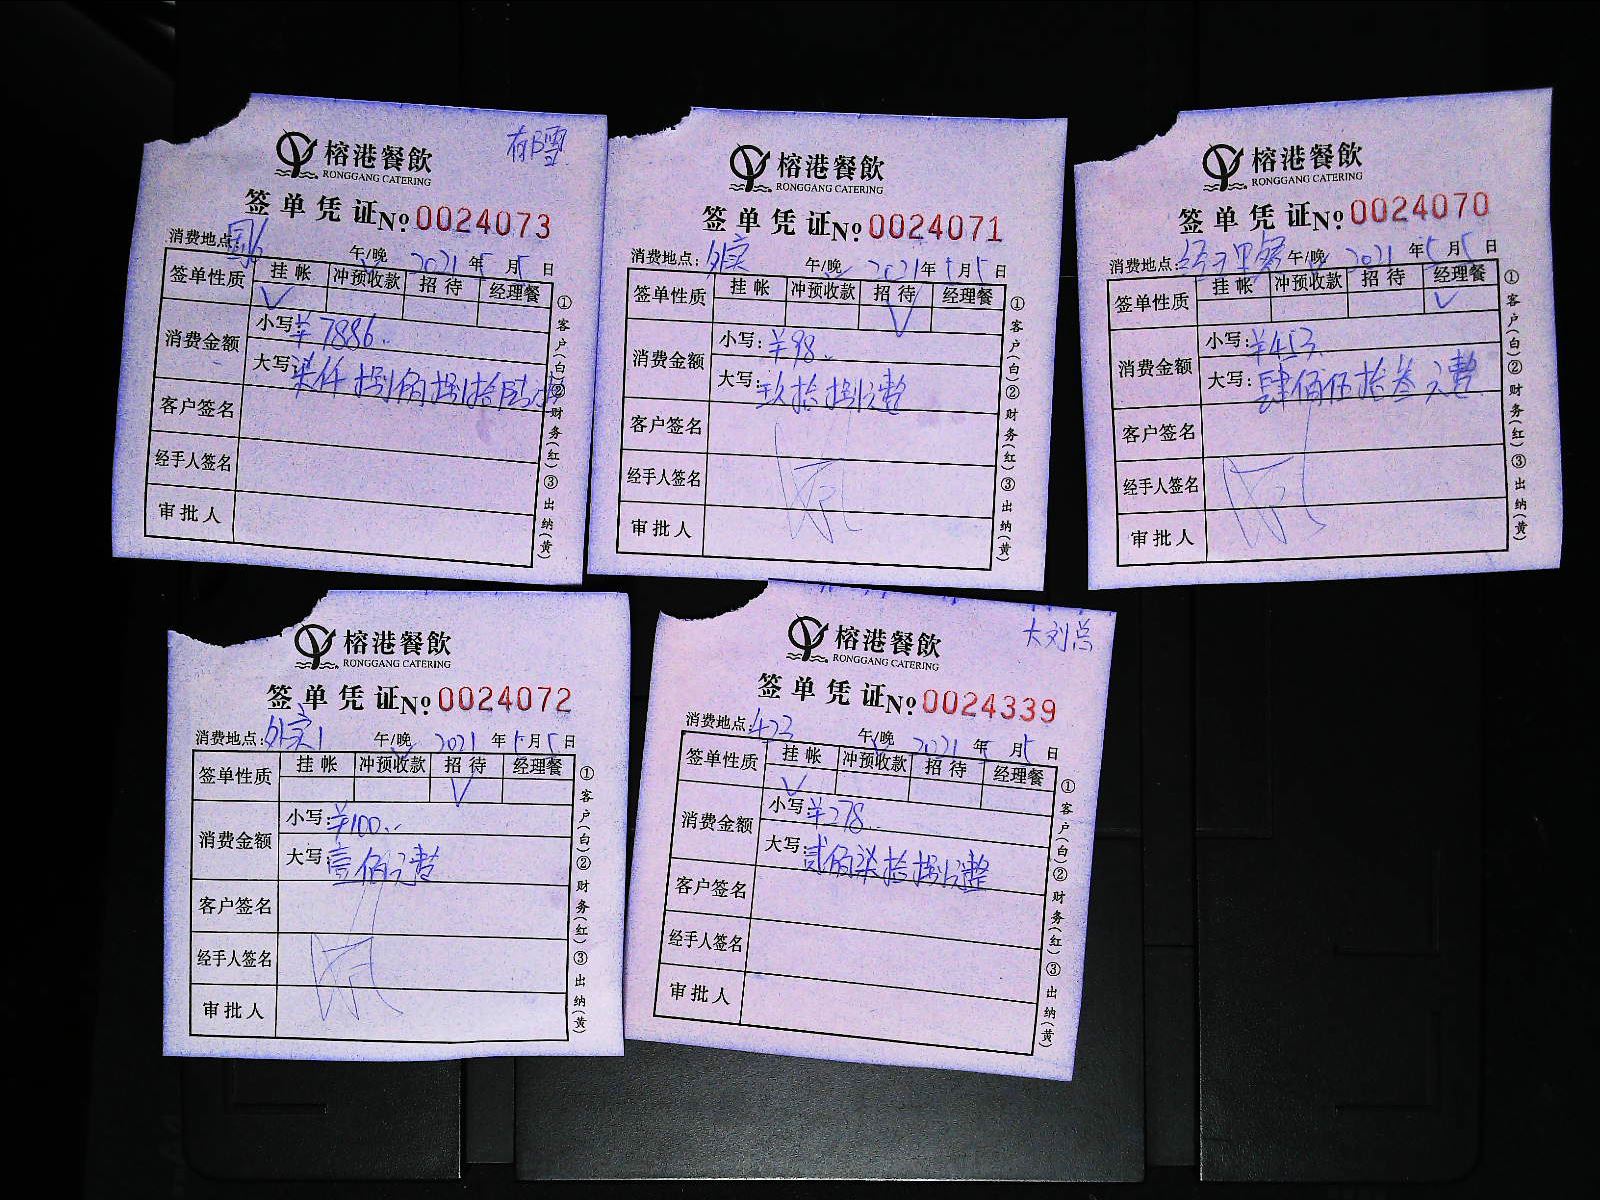 榕港餐飲
RONGGANG CATERING
签单凭证 No. 0024073
消费地点: 午/晚 2021年5月5日
签单性质 挂帐 冲预收款 招待 经理餐
√
消费金额 小写:¥7886..
大写:柒仟捌佰捌拾陆元
客户签名
经手人签名
审批人
①客户(白)②财务(红)③出纳(黄)
榕港餐飲
RONGGANG CATERING
签单凭证 No. 0024071
消费地点:外宾 午/晚 2021年5月5日
签单性质 挂帐 冲预收款 招待 经理餐
√
消费金额 小写:¥98..
大写:玖拾捌元整
客户签名
经手人签名
审批人
①客户(白)②财务(红)③出纳(黄)
榕港餐飲
RONGGANG CATERING
签单凭证 No. 0024070
消费地点:经理餐 午/晚 2021年5月5日
签单性质 挂帐 冲预收款 招待 经理餐
√
消费金额 小写:¥453.
大写:肆佰伍拾叁元整
客户签名
经手人签名
审批人
①客户(白)②财务(红)③出纳(黄)
榕港餐飲
RONGGANG CATERING
签单凭证 No. 0024072
消费地点:外宾1 午/晚 2021年5月5日
签单性质 挂帐 冲预收款 招待 经理餐
√
消费金额 小写:¥100..
大写:壹佰元整
客户签名
经手人签名
审批人
①客户(白)②财务(红)③出纳(黄)
大刘总
榕港餐飲
RONGGANG CATERING
签单凭证 No. 0024339
消费地点:423 午/晚 2021年5月5日
签单性质 挂帐 冲预收款 招待 经理餐
√
消费金额 小写:¥278..
大写:贰佰柒拾捌元整
客户签名
经手人签名
审批人
①客户(白)②财务(红)③出纳(黄)